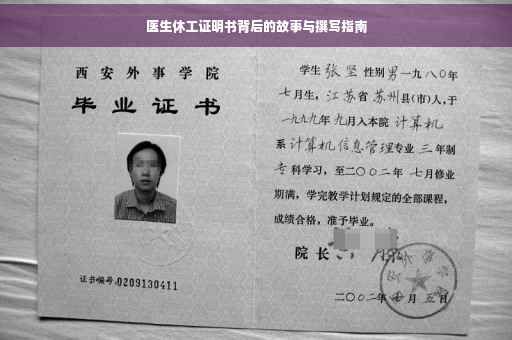 医生休工证明书背后的故事与撰写指南
西安外事学院
毕业证书
证书编号:0209130411
学生 张坚 性别 男 一九八〇年
七月生,江苏省苏州县(市)人,于
一九九九年九月入本院 计算机
系 计算机信息管理 专业 三 年制
专科学习,至二〇〇二年 七月修业
期满,学完教学计划规定的全部课程,
成绩合格,准予毕业。
院长
二〇〇二年 月五日